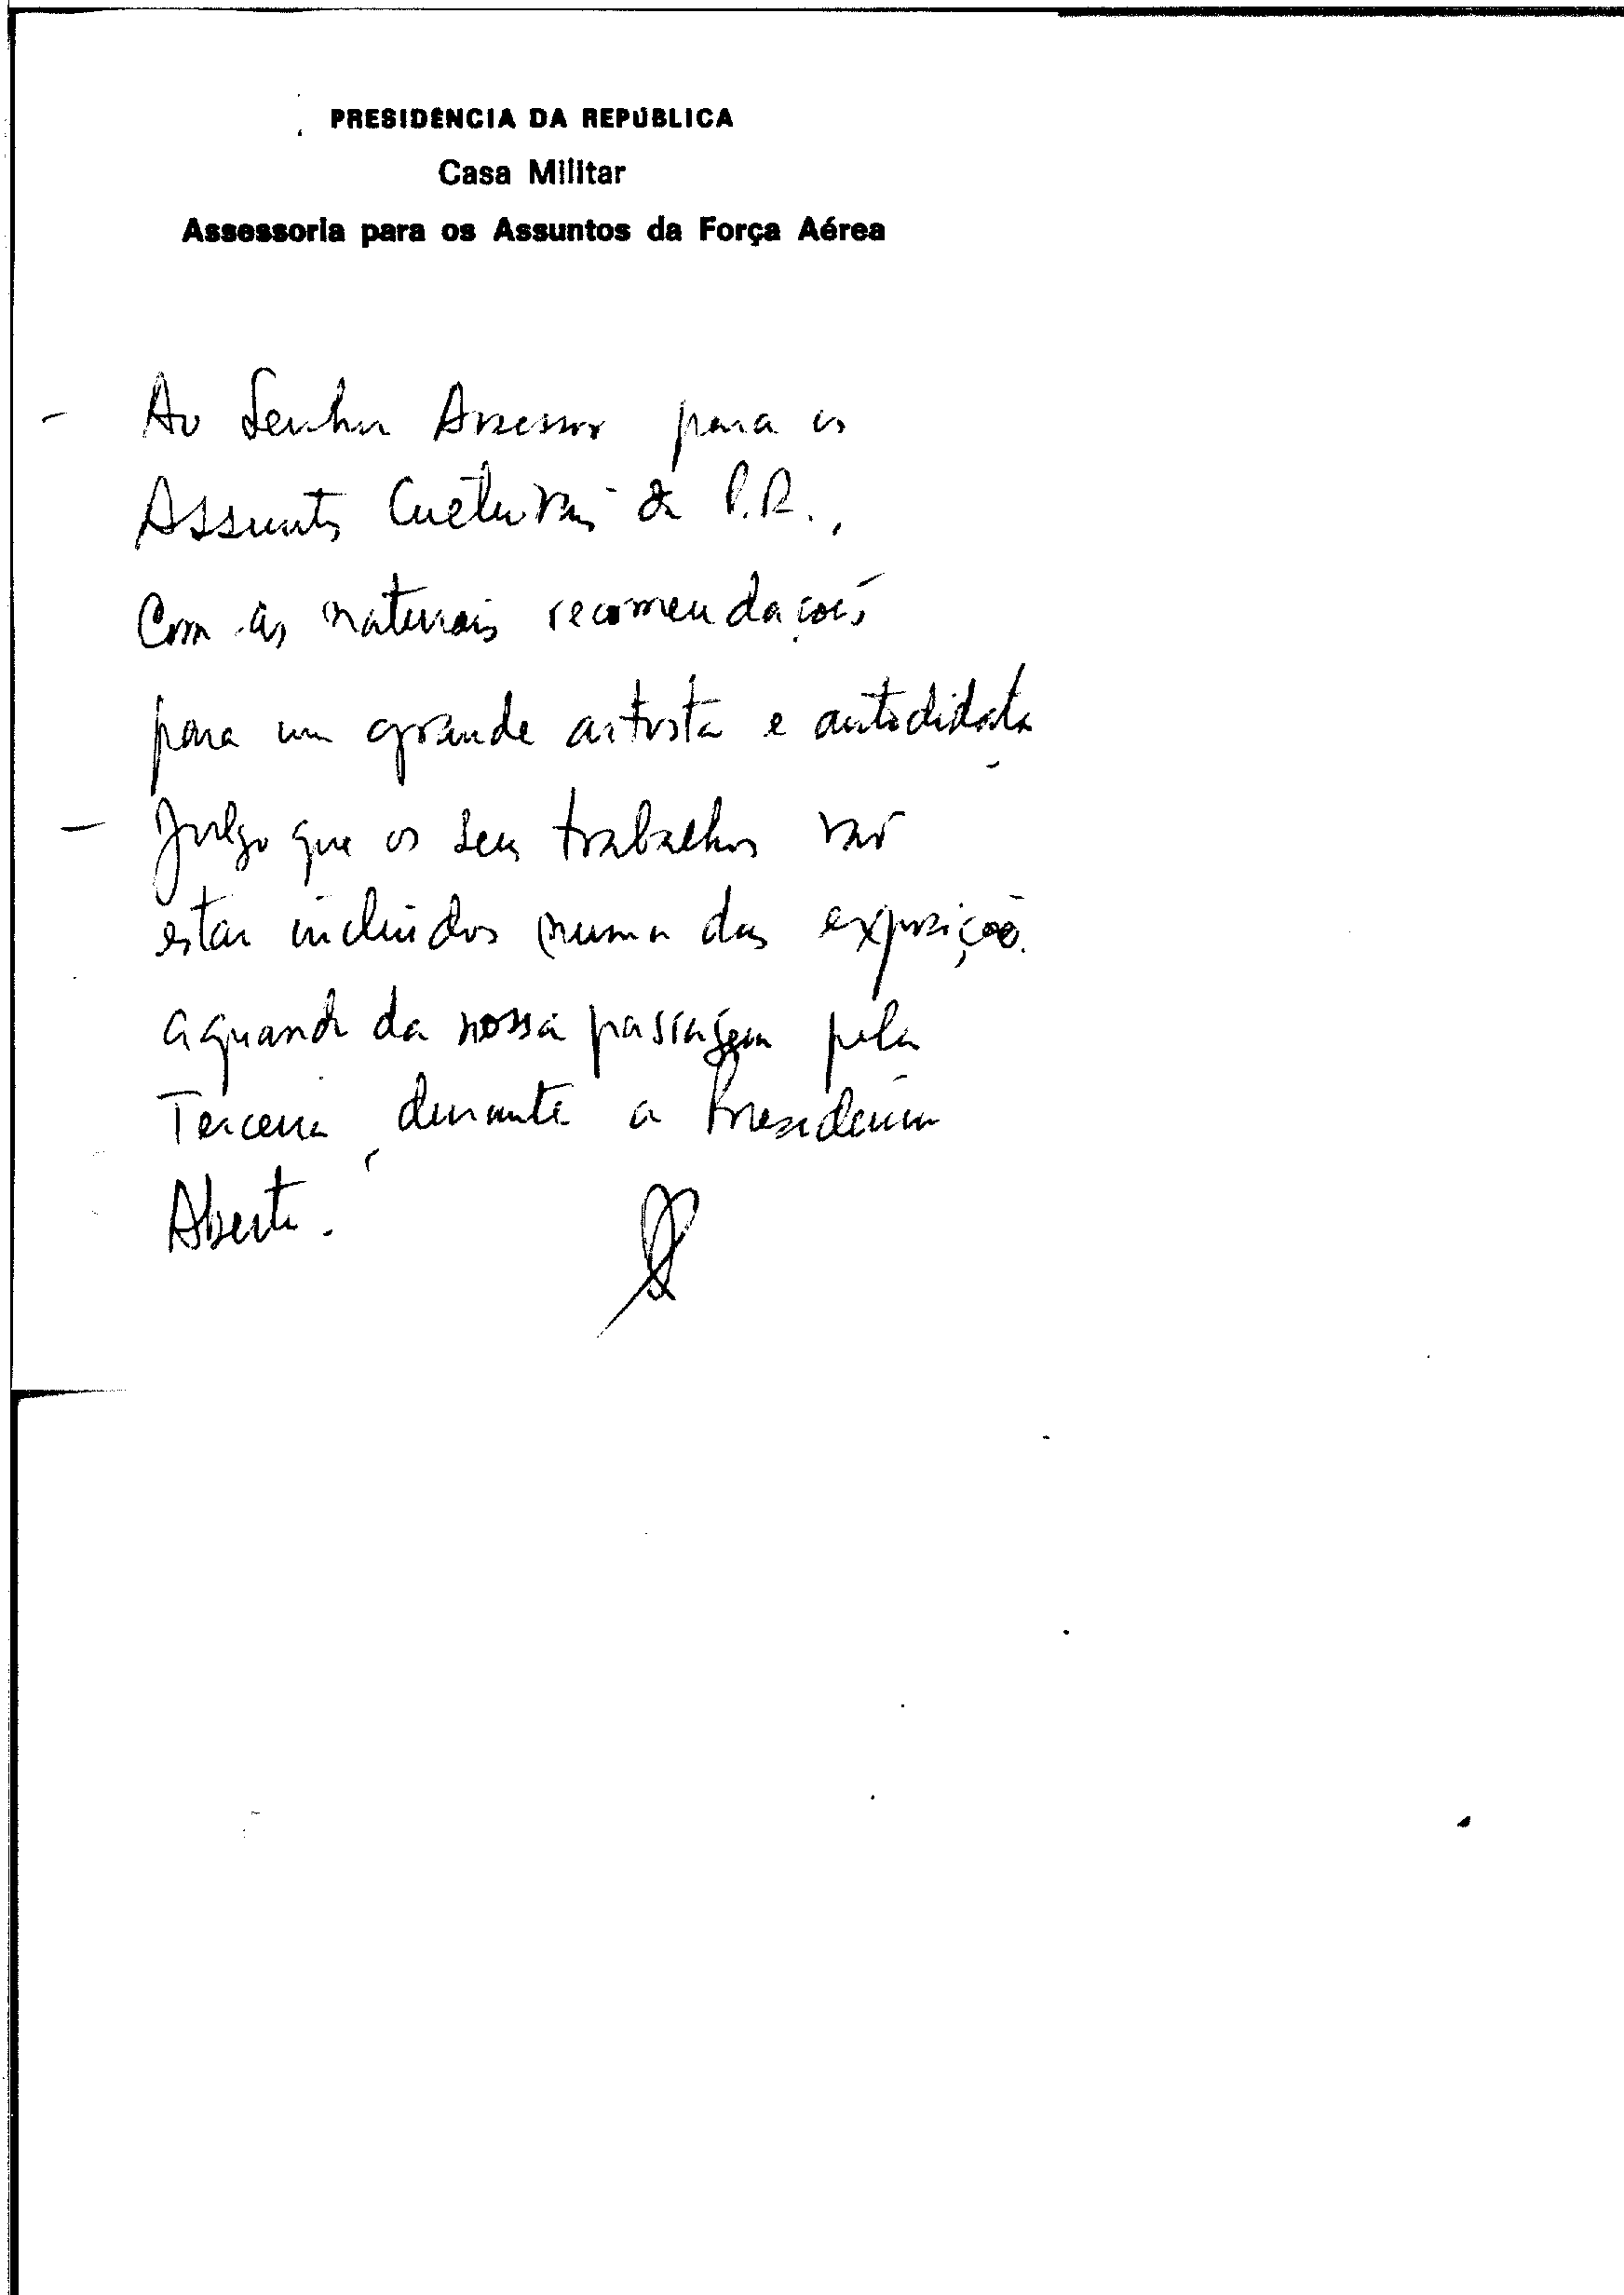 PRESIDÊNCIA DA REPÚBLICA
Casa Militar
Assessoria para os Assuntos da Força Aérea
- Ao Senhor Assessor para os
Assuntos Culturais da P.R.,
Com as naturais recomendações
para um grande artista e autodidata
- Julgo que os seus trabalhos vão
estar incluidos numa das exposições
aquando da nossa passagem pela
Terceira, durante a Presidência
Aberta.